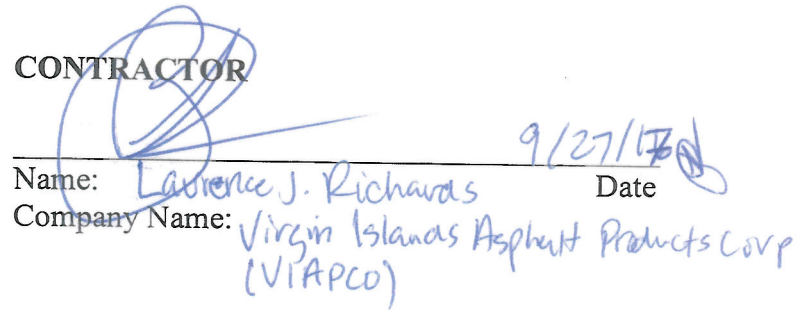 CONTRACTOR
9/27/17
Name: Laurence J. Richards Date
Company Name: Virgin Islands Asphalt Products Corp
(VIAPCO)